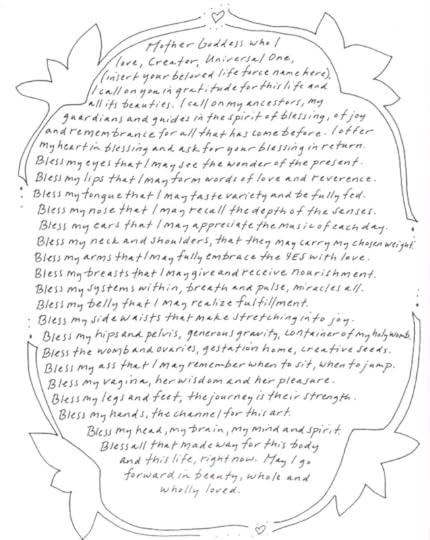 Mother Goddess who I
love, Creator, Universal One,
(insert your beloved life force name here),
I call on you in gratitude for this life and
all its beauties. I call on my ancestors, my
guardians and guides in the spirit of blessing, of joy
and remembrance for all that has come before. I offer
my heart in blessing and ask for your blessing in return.
Bless my eyes that I may see the wonder of the present.
Bless my lips that I may form words of love and reverence.
Bless my tongue that I may taste variety and be fully fed.
Bless my nose that I may recall the depth of the senses.
Bless my ears that I may appreciate the music of each day.
Bless my neck and shoulders, that they may carry my chosen weight.
Bless my arms that I may fully embrace the YES with love.
Bless my breasts that I may give and receive nourishment.
Bless my systems within, breath and pulse, miracles all.
Bless my belly that I may realize fulfillment.
Bless my side waists that make stretching into joy.
Bless my hips and pelvis, generous gravity, container of my holy womb.
Bless the womb and ovaries, gestation home, creative seeds.
Bless my ass that I may remember when to sit, when to jump.
Bless my vagina, her wisdom and her pleasure.
Bless my legs and feet, the journey is their strength.
Bless my hands, the channel for this art.
Bless my head, my brain, my mind and spirit.
Bless all that made way for this body
and this life, right now. May I go
forward in beauty, whole and
wholly loved.